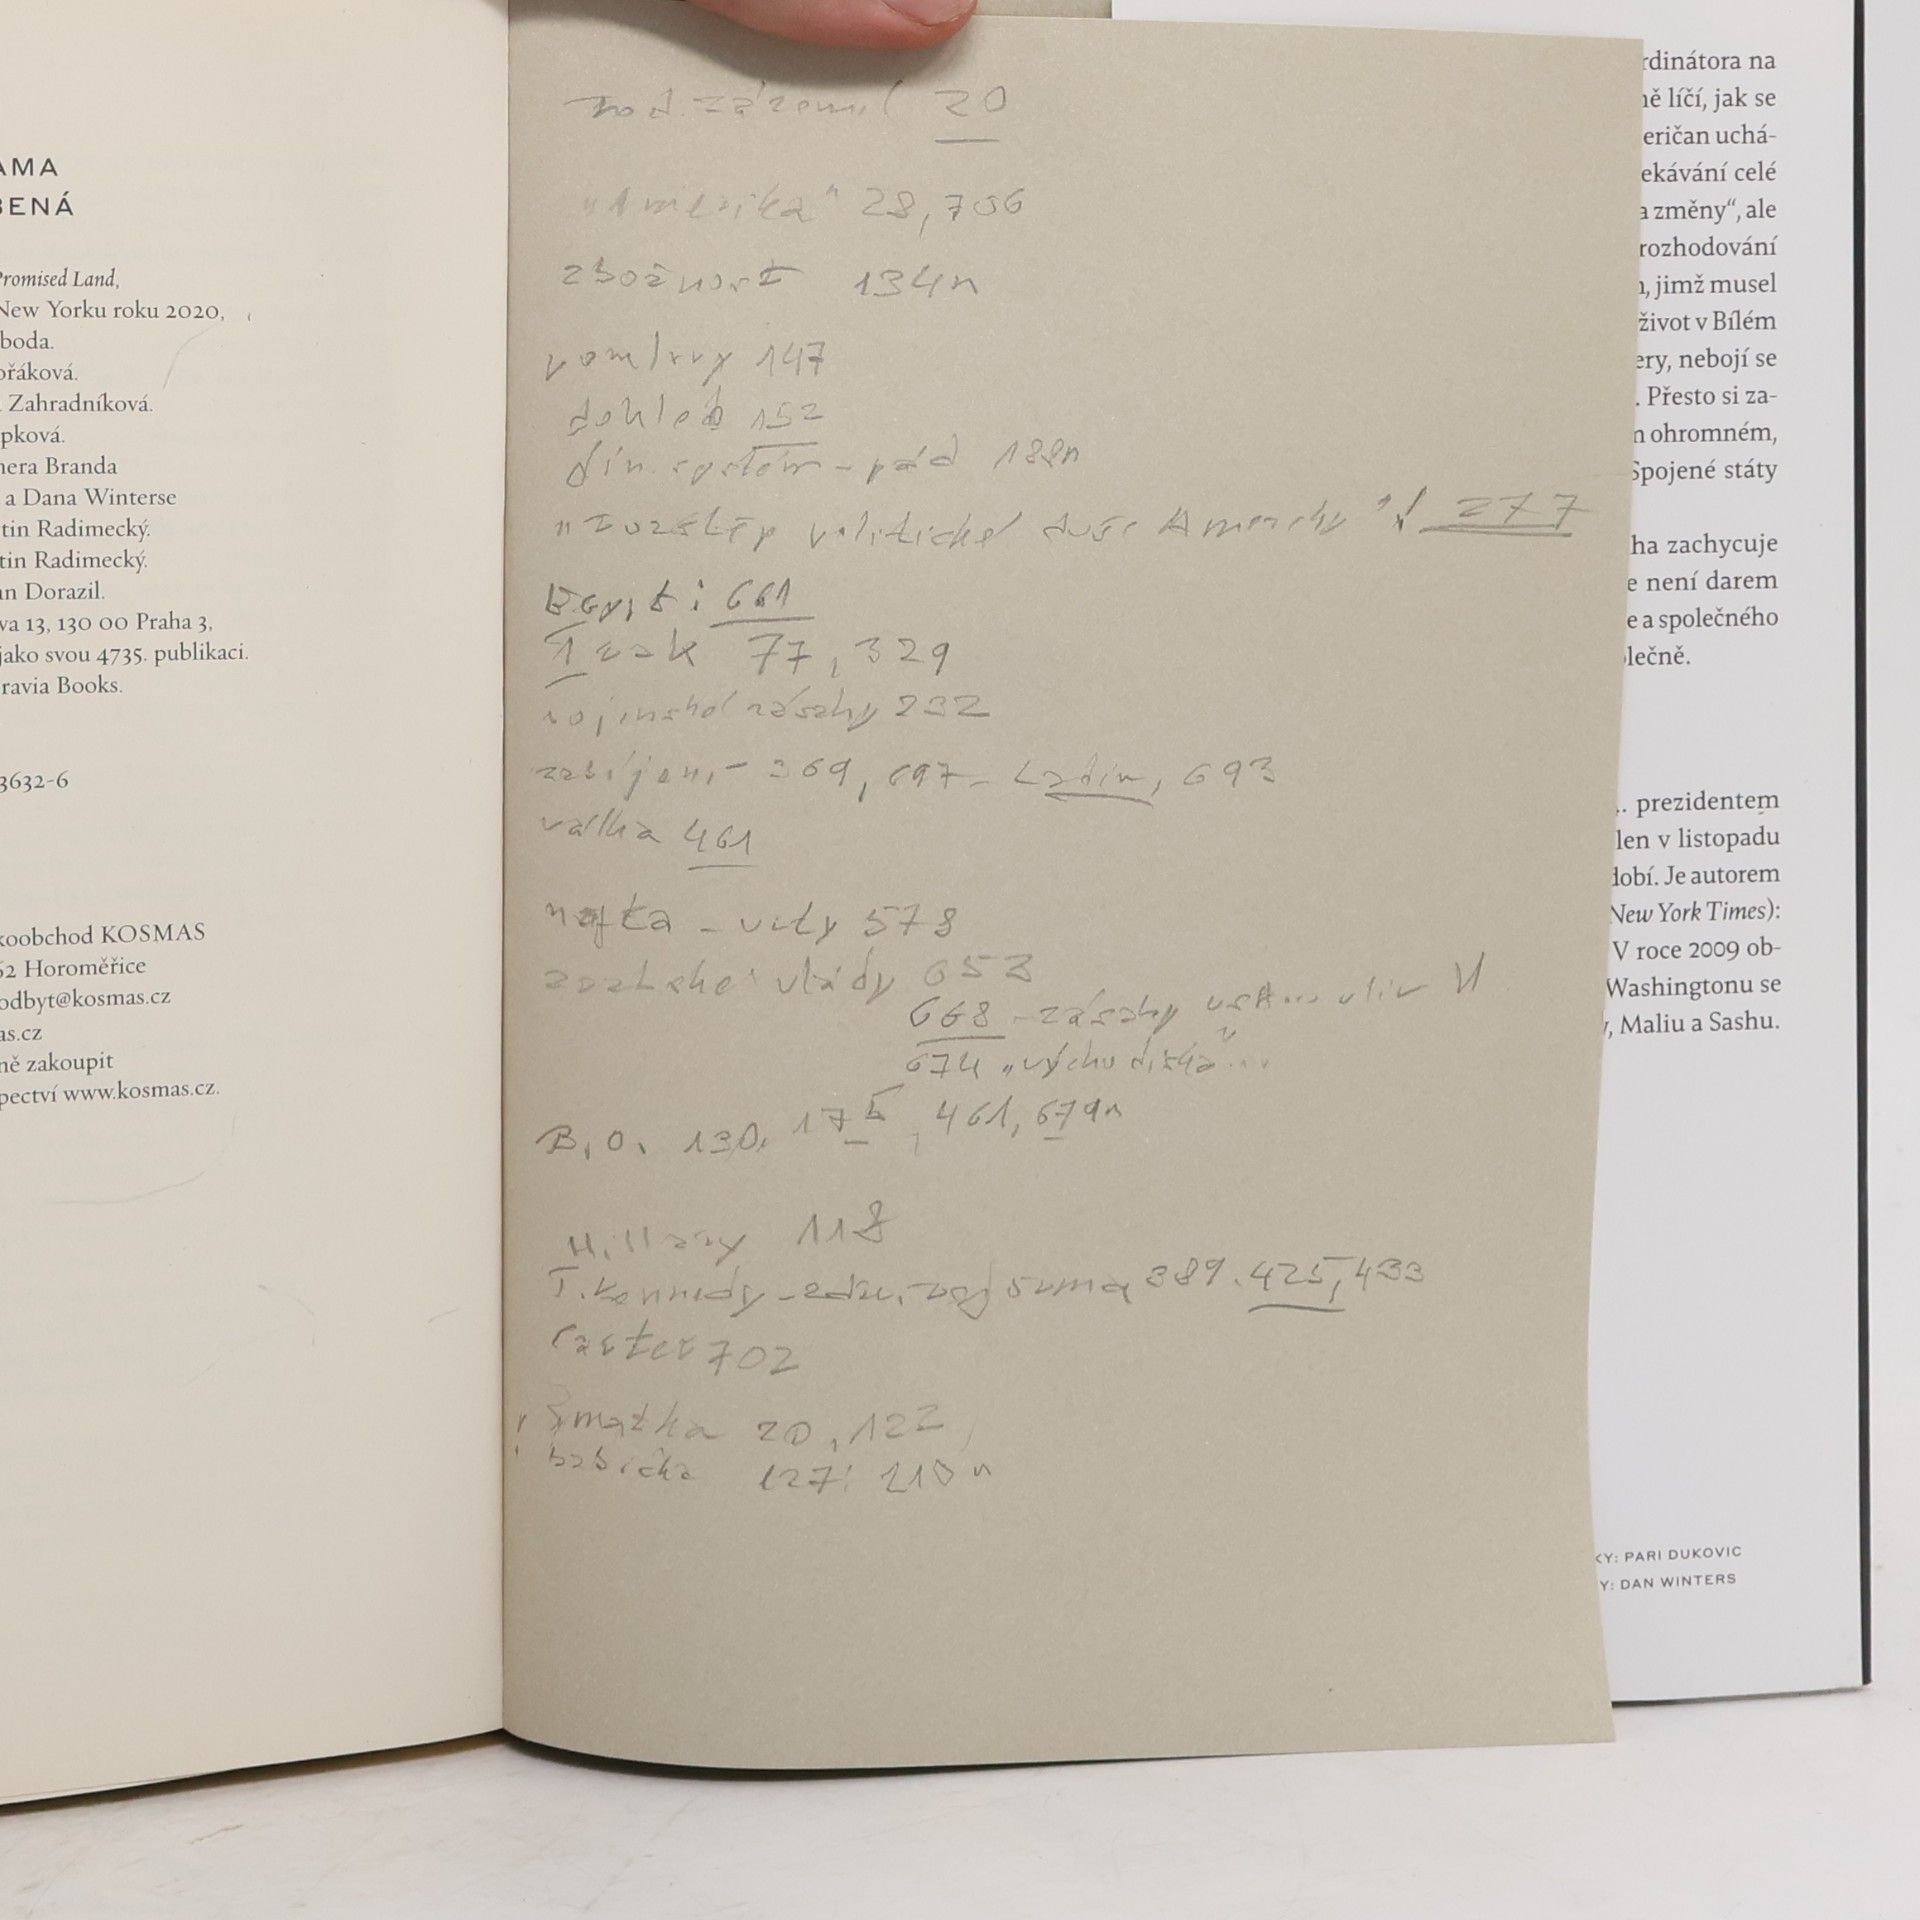 AMA
BENÁ
Promised Land,
New Yorku roku 2020,
boda.
ořáková.
Zahradníková.
pková.
nera Branda
a Dana Winterse
tin Radimecký.
tin Radimecký.
an Dorazil.
va 13, 130 00 Praha 3,
jako svou 4735. publikaci.
ravia Books.
3632-6
koobchod KOSMAS
62 Horoměřice
odbyt@kosmas.cz
as.cz
ně zakoupit
pectví www.kosmas.cz.
rod. zázemí 20
"Amerika" 28, 706
zbožnost 134n
pomluvy 147
dohled 152
fin. systém - pád 188n
"rozštěp politické duše Ameriky"! 277
Egypt: 661
Irak 77, 329
vojenské zásahy 232
zabíjení - 369, 697 - Ladin, 693
válka 461
nafta - vrty 573
arabské vlády 653
668 - zásahy USA vliv
674 "východiska"...
B. O. 130, 175, 461, 679n
Hillary 118
T. Kennedy - zdrav. reforma 389. 425, 433
Carter 702
matka 20, 122
babička 127: 210n
rdinátora na
ně líčí, jak se
eričan uchá-
ekávání celé
a změny“, ale
rozhodování
, jimž musel
život v Bílém
ery, nebojí se
. Přesto si za-
n ohromném,
Spojené státy
ha zachycuje
e není darem
e a společného
lečně.
. prezidentem
len v listopadu
dobí. Je autorem
New York Times):
V roce 2009 ob-
Washingtonu se
, Maliu a Sashu.
KY: PARI DUKOVIC
Y: DAN WINTERS